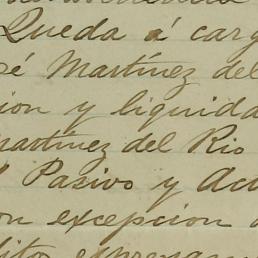 Queda á carg
sé Martínez del
ion y liquida
Martínez del Rio
l Pasivo y Act
on excepcion